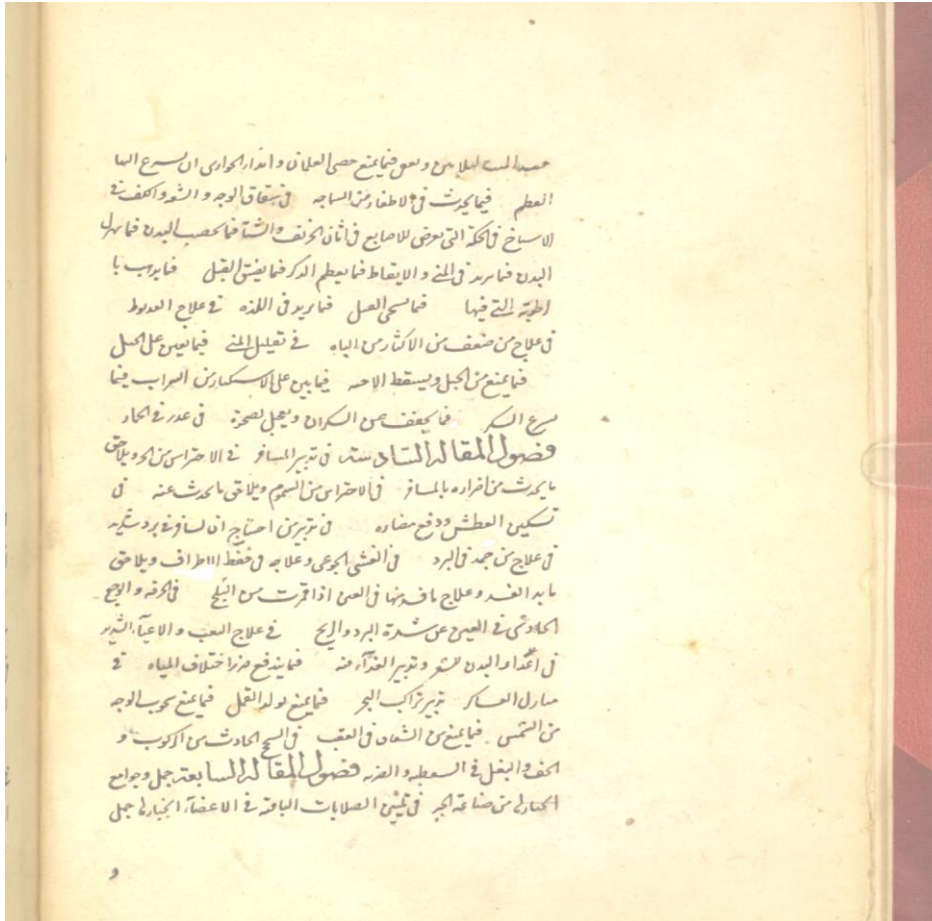 فيما يمنع خصى الغلمان و اثداء الجوارى ان يسرع اليها
العظم فيما يحدث فى الاظفار من فى شقاق الوجه و الشفة و الكف فى
فى الحكة التى تعرض للاصابع فى ابان الخريف و الشتا فيما يخصب البدن فيما يهزل
البدن فيما يزيد فى المنى و الانعاظ فيما يعظم الذكر فيما يضيق القبل فيما يذهب با
لرطوبة التى فيها فيما يسخن القبل فيما يزيد فى اللذه فى علاج العذيوط
فى علاج من ضعف من الاكثار من الباه فى تقليل المنى فيما يعين على الحبل
فيما يمنع من الحبل و يسقط الاجنه فيما يعين على الاستكثار من الشراب فيما
يسرع السكر فيما يخفف عن السكران و يعجل بصحوه فى فى الخمار
فصول المقاله السادسة فى تدبير المسافر فى الاحتراس من الحر و يلاحق
ما يحدث من اضراره بالمسافر فى الاحتراس من السموم و يلاحق ما يحدث عنه فى
تسكين العطش و دفع مضاره فى تدبير من احتاج ان يسافر فى برد شديد
فى علاج من جمد فى البرد فى الغشى الجوعى و علاجه فى حفظ الاطراف و يلاحق
ما بدا يفسد و علاج ما فسد منها فى العين اذا قمرت من الثلج فى الحرقه و الوجع
الحادثين فى العين عن شدة البرد و الريح فى علاج التعب و الاعياء الشديد
فى اعداد البدن للسفر و تدبير الغذاء منه فيما يدفع ضرر اختلاف المياه فى
منازل العساكر تدبير راكب البحر فيما يمنع تولد القمل فيما يمنع شحوب الوجه
من الشمس فيما يمنع من الشقاق فى العقب فى السحج الحادث من الركوب و
الخف و النعل فى السقطه و الضربه فصول المقاله السابعة جمل و جوامع
من صناعة الجبر فى تليين الصلابات الباقيه فى الاعضاء جمل
و